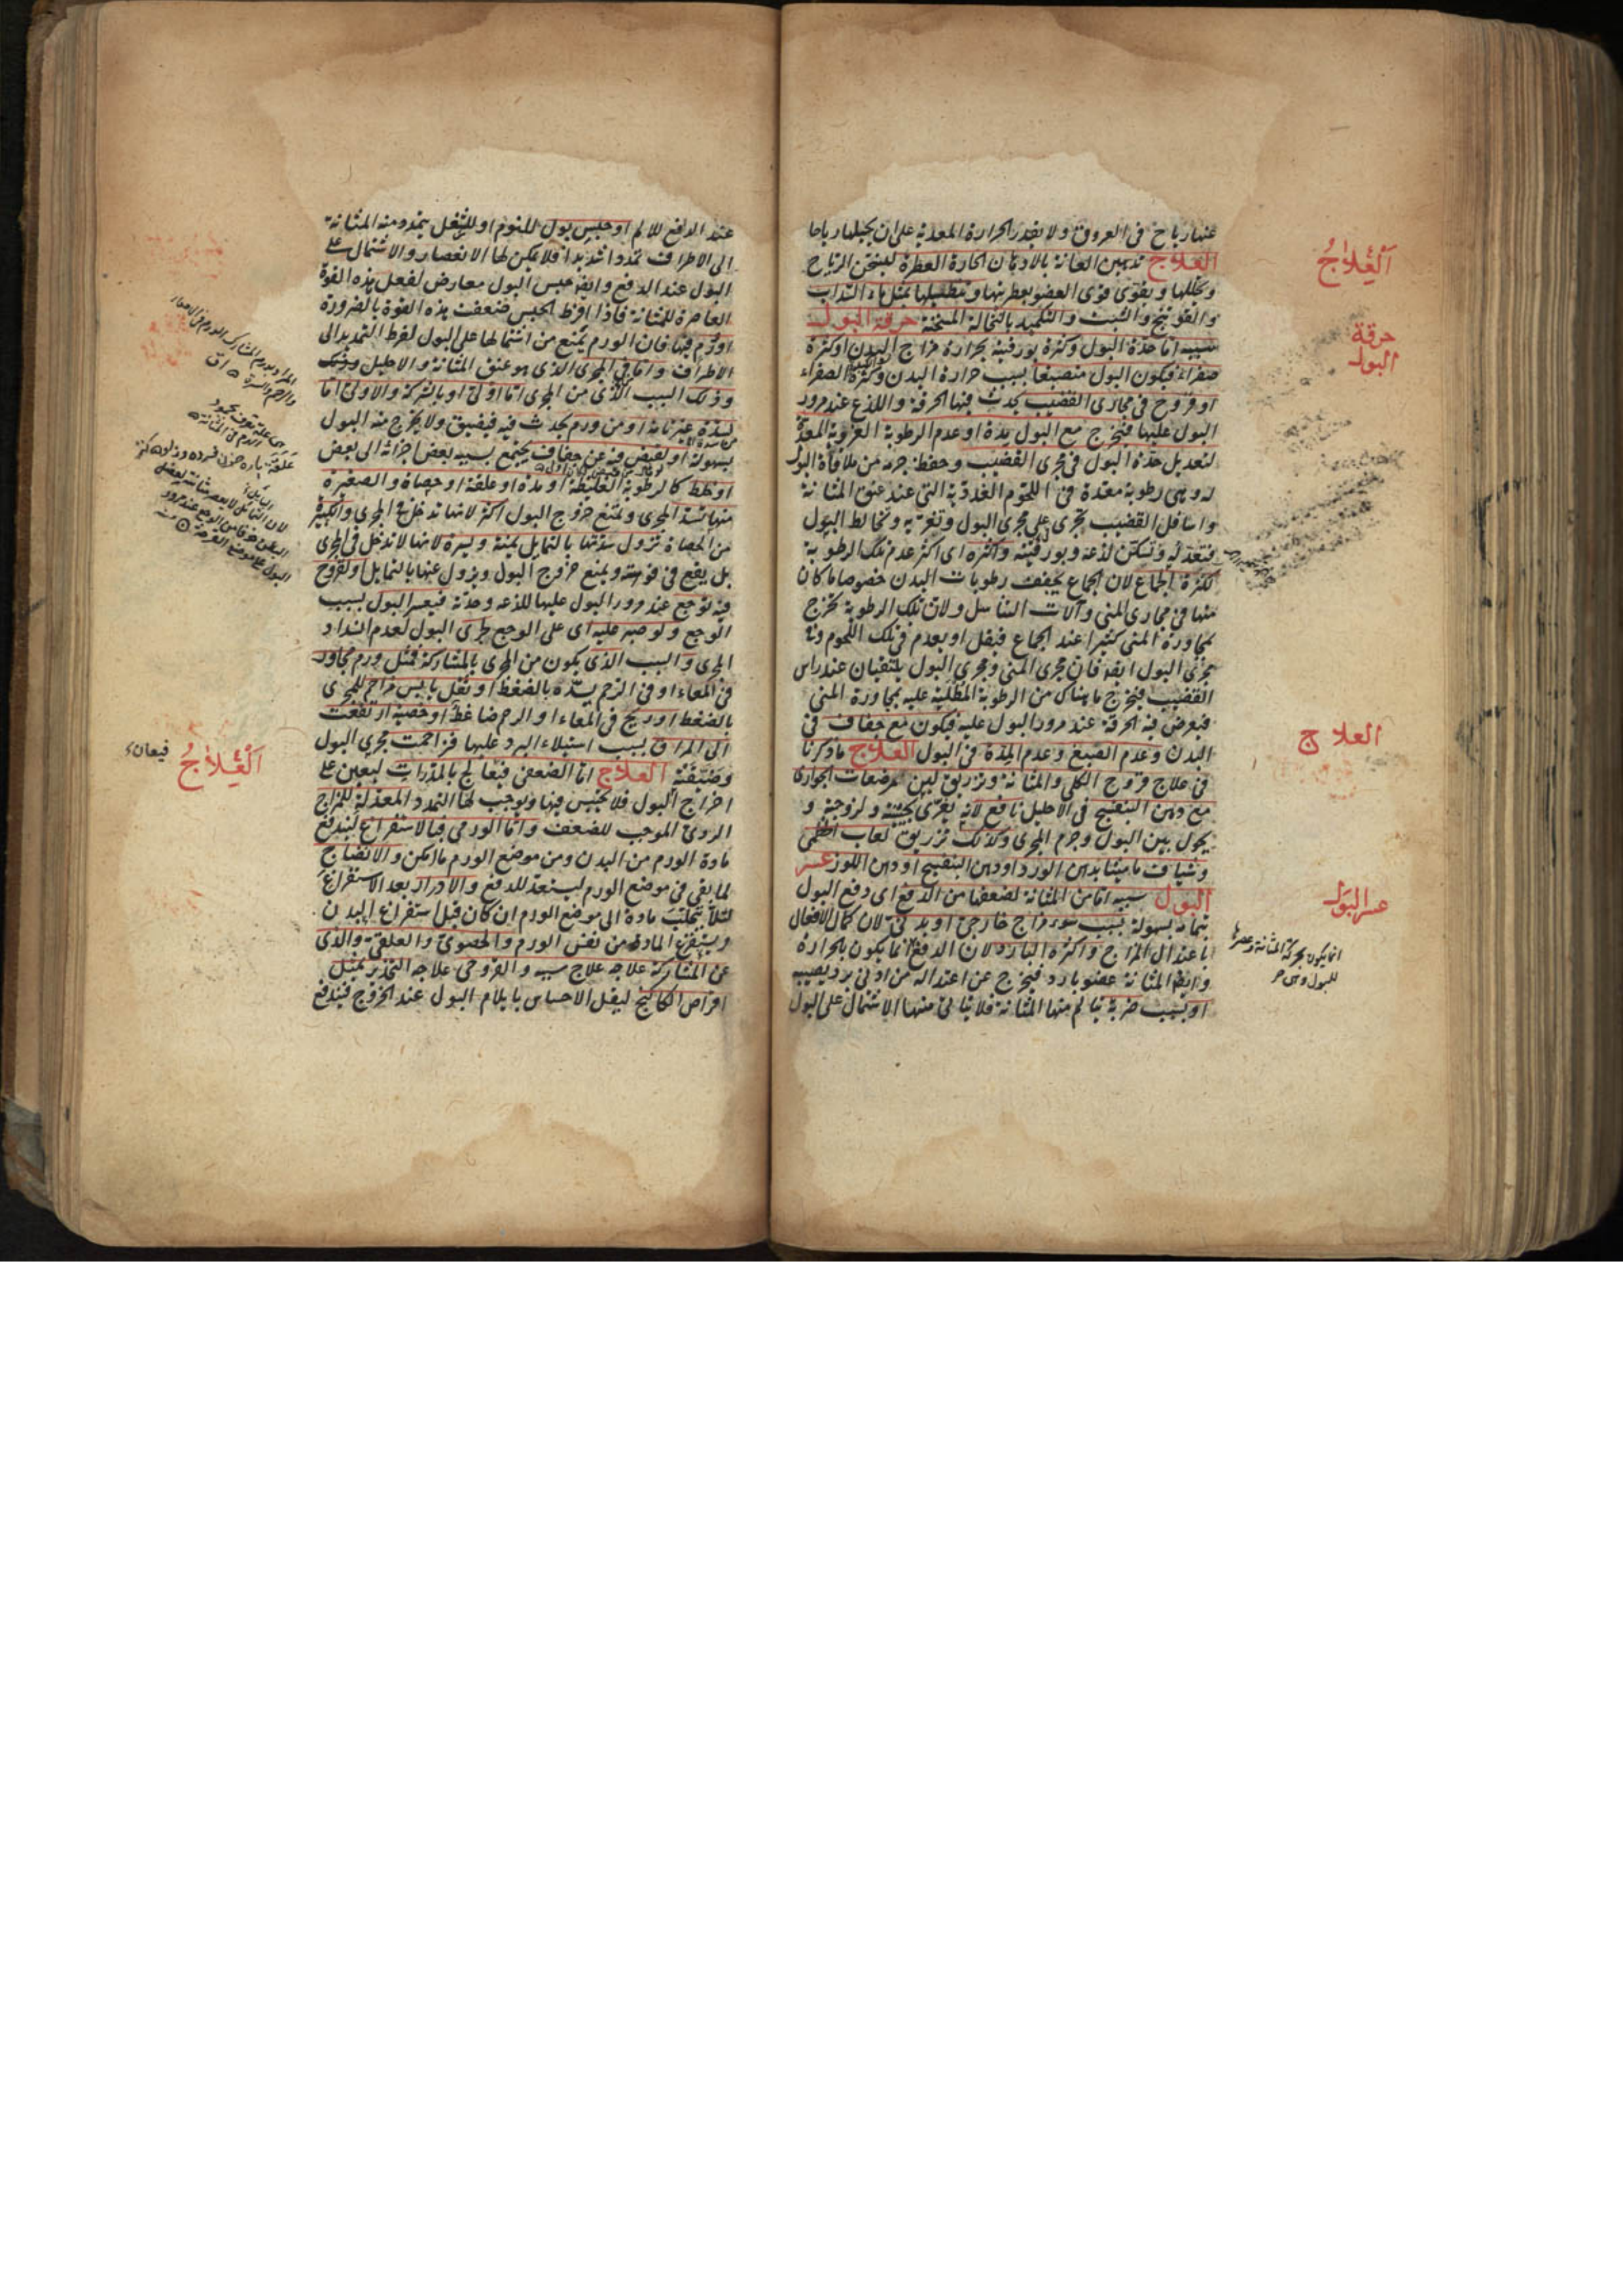 عنها رياح فى العروق ولا يقدر الحرارة المعدية على ان يحيلها رياحا
العلاج تدهين العانة بالادهان الحارة العطرة ليسخن الرياح
ويحللها ويقوى قوى العضو بعطريتها وتنطيلها بمثل ماء السداب
والفوتنج والشبت والتكميد بالنخالة المسخنة حرقة البول
سببه اما حدة البول وكثرة بورقيته بحرارة مزاج البدن او كثرة
صفراء فيكون البول منصبغا بسبب حرارة البدن وكثرة الصفراء
او قروح فى مجارى القضيب يحدث فيها الحرقة واللذع عند مرور
البول عليها فيخرج مع البول مدة او عدم الرطوبة الغروية المعدة
لتعديل حدة البول فى مجرى القضيب وحفظ جرمه من ملاقاة البول
له وهى رطوبة معدة فى اللحوم الغددية التى عند عنق المثانة
واسافل القضيب تجرى على مجرى البول وتغريه وتخالط البول
فتعدله وتسكن لذعه وبورقيته واكثره اى اكثر عدم تلك الرطوبة
لكثرة الجماع لان الجماع يجفف رطوبات البدن خصوصا ما كان
منها فى مجارى المنى وآلات التناسل ولان تلك الرطوبة تخرج
لمجاورة المنى كثيرا عند الجماع فيقل او يعدم فى تلك اللحوم وفى
مجرى البول ايضا فان مجرى المنى ومجرى البول يلتقيان عند راس
القضيب فيخرج ما هناك من الرطوبة المطلية عليه بمجاورة المنى
فيعرض فيه الحرقة عند مرور البول عليه فيكون مع جفاف فى
البدن وعدم الصبغ وعدم المدة فى البول العلاج ما ذكرنا
فى علاج قروح الكلى والمثانة وتزريق لبن مرضعات الجوارى
مع دهن البنفسج فى الاحليل نافع لانه يغرى بجبنيته ولزوجته و
يحول بين البول وجرم المجرى وكذلك تزريق لعاب الخطمى
وشياف ماميثا بدهن الورد او دهن البنفسج او دهن اللوز عسر
البول سببه اما من المثانة لضعفها من الدفع اى دفع البول
بتمامه بسهولة بسبب سوء مزاج خارجى او بدنى لان كمال الافعال
باعتدال المزاج واكثره البارد لان الدفع انما يكون بالحرارة
وايضا المثانة عضو بارد فيخرج عن اعتداله من ادنى برد يصيبه
او بسبب ضربة تتالم منها المثانة فلا يتاتى منها الاشتمال على البول
اَلْعِلَاجُ
حرقة
البول
العلاج
عسر البول
انما يكون بحركة المثانة وعصرها
للبول وهى
عند الدفع للالم او حبس بول للنوم او للشغل يتمدد منه المثانة
الى الاطراف تمددا شديدا فلا يمكن لها الانعصار والاشتمال على
البول عند الدفع وايضا حبس البول معارض لفعل هذه القوة
العاصرة للمثانة فاذا افرط الحبس ضعفت هذه القوة بالضرورة
او ورم فيها فان الورم يمنع من اشتمالها على البول لفرط التمدد الى
الاطراف واما فى المجرى الذى هو عنق المثانة والاحليل
وذلك السبب الذى من المجرى اما اولى او بالشركة والاولى اما
لسدة من ورم يحدث فيه فيضيق ولا يخرج منه البول
بسهولة او لقبض فيه عن جفاف يجتمع بسببه بعض اجزائه الى بعض
او خلط كالرطوبة الغليظة او مدة او علقة او حصاة والصغيرة
منها تسد المجرى وتمنع خروج البول اكثر لانها تدخل فى المجرى والكبيرة
من الحصاة تزول سدتها بالتمايل يمنة ويسرة لانها لا تدخل فى المجرى
بل يقع فى فوهته ويمنع خروج البول ويزول عنها بالتمايل او لقروح
فيه توجع عند مرور البول عليها للذعه وحدته فيعسر البول بسبب
الوجع ولو صبر عليه اى على الوجع جرى البول لعدم انسداد
المجرى والسبب الذى يكون من المجرى بالمشاركة فمثل ورم مجاور
فى المعاء او فى الرحم يسده بالضغط او ثفل يابس مزاحم للمجرى
بالضغط او ريح فى المعاء او الرحم ضاغطة او خصية ارتفعت
الى المراق بسبب استيلاء البرد عليها فزاحمت مجرى البول
وضيقته العلاج اما الضعفى فيعالج بالمدرات ليعين على
اخراج البول فلا يحتبس فيها ويوجب لها التمدد المعدلة للمزاج
الردى الموجب للضعف واما الورمى فبالاستفراغ ليندفع
مادة الورم من البدن ومن موضع الورم ما امكن والانضاج
لما بقى فى موضع الورم ليستعد للدفع والادرار بعد الاستفراغ
لئلا يتحلب مادة الى موضع الورم ان كان قبل استفراغ البدن
ويستفرغ المادة من نفس الورم والحصوى والعلقى والذى
عن المشاركة علاجه علاج سببه والقروحى علاجه التخدير بمثل
اقراص الكاكنج ليقل الاحساس بايلام البول عند الخروج فيندفع
اَلْعِلَاجُ